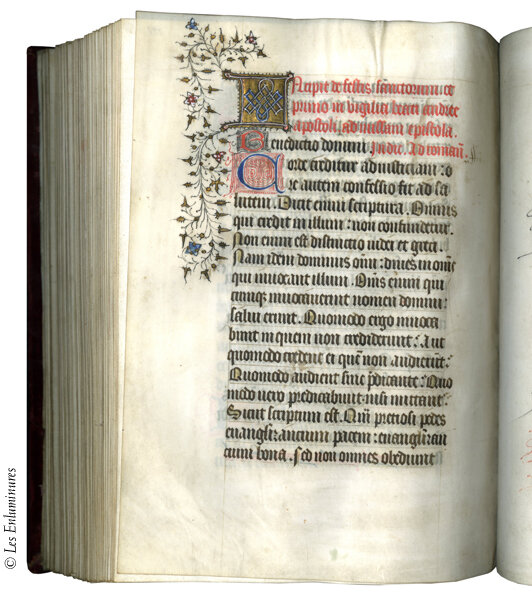 Incipit de festis sanctorum. et
primo in vigilia beati andree
apostoli. ad missam epistola.
Benedictio domini. In die. Ad romanos.
Corde creditur ad iusticiam: o
re autem confessio fit ad sa
lutem. Dicit enim scriptura. Omnis
qui credit in illum: non confundetur.
Non enim est distinctio iudei et greci.
Nam idem dominus omnium: dives in omnes
qui invocant illum. Omnis enim qui
cumque invocaverit nomen domini:
salvus erit. Quomodo ergo invoca
bunt in quem non crediderunt: Aut
quomodo credent ei quem non audierunt:
Quomodo audient sine predicante: Quo
modo vero predicabunt nisi mittantur:
Sicut scriptum est. Quam preciosi pedes
evangelizancium pacem: evangelizan
cium bona. Sed non omnes obediunt
© Les Enluminures